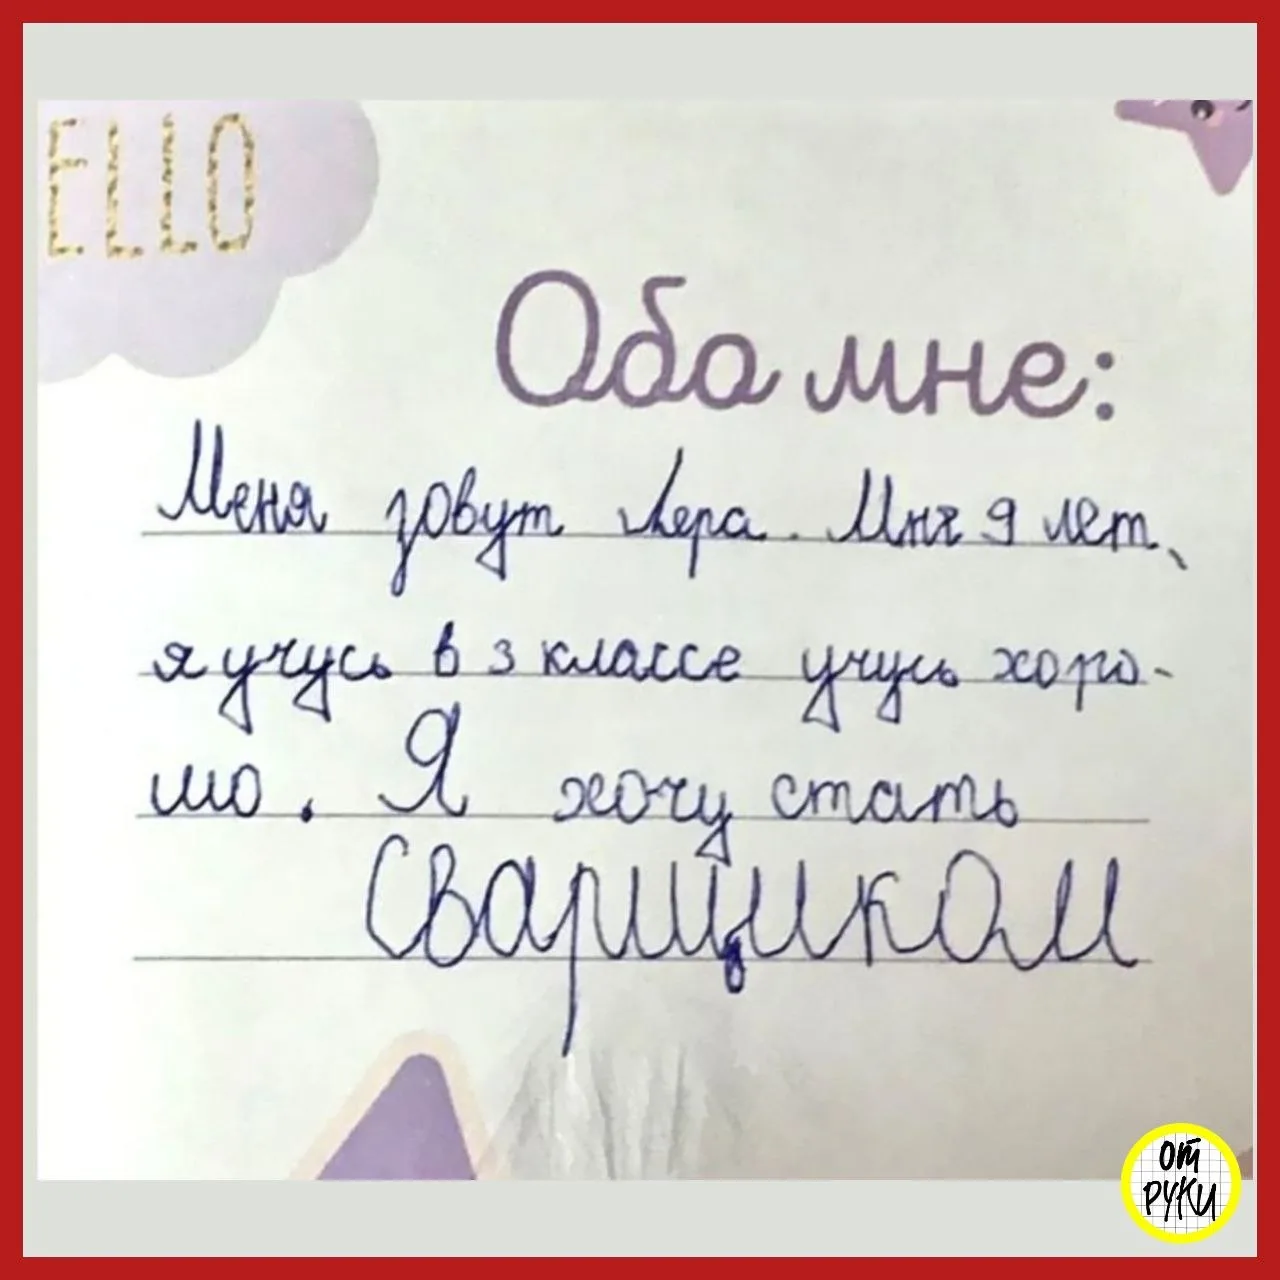 ELLO
Обо мне:
Меня зовут Лера. Мне 9 лет,
я учусь в 3 классе учусь хоро-
шо. Я хочу стать
Сварщиком
от
руки